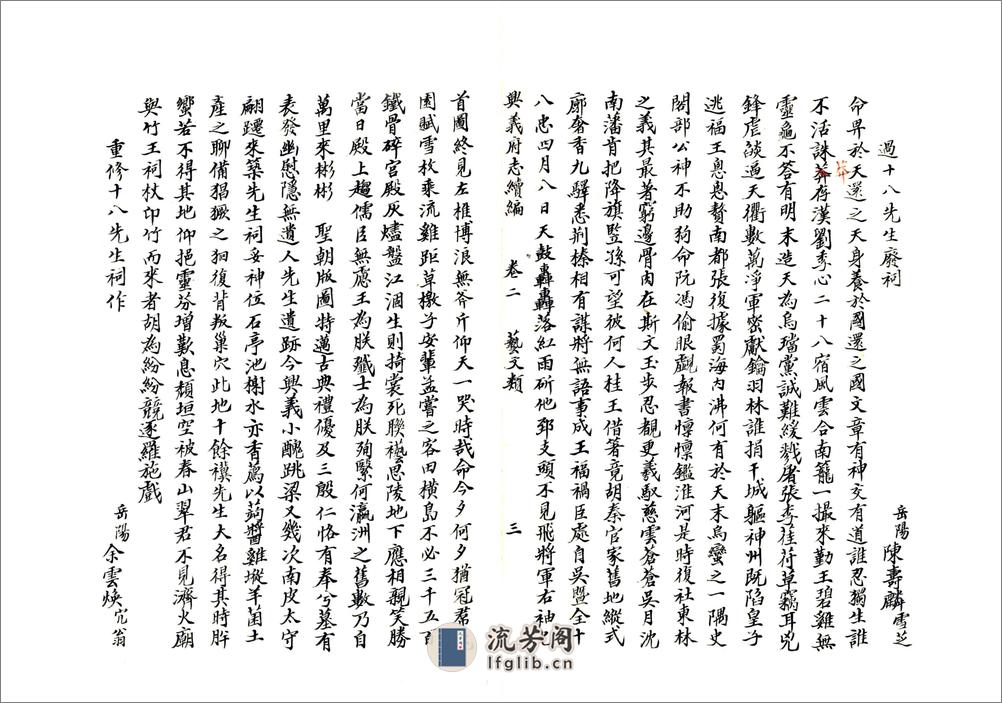 過十八先生廢祠
岳陽 陳壽麟 雪芝
命畀於天還之天身養於國還之國文章有神交有道誰忍獨生誰
不活誅莽存漢劉季心二十八宿風雲合南籠一撮來勤王碧雞無
莽
靈龜不答有明末造天為烏璫黨誠難緩戮屠張李萑苻草竊耳兇
鋒虐燄逼天衢數萬淨軍密獻鑰羽林誰捐干城軀神州既陷皇子
逃福王恩恩贅南都張復據蜀海內沸何有於天末烏蠻之一隅史
閣部公神不助狗命阮馮偷眼覷報書懍懍鑑淮河是時復社東林
之義其最著窮邊骨肉在斯文玉步忍覩更羲馭慈雲蒼蒼吳月沈
南潘肯把降旗豎孫可望彼何人桂王借箸竟胡秦官家舊地縱式
廓奢香九驛悉荊榛相有謀將無語事成王福禍臣處自吳暨全十
八忠四月八日天鼓轟轟落紅雨斫他郅支頭不見飛將軍右袖出
興義府志續編 卷二 藝文類 三
首圖終見左椎博浪無斧斤仰天一哭時哉命今夕何夕猶冠羣
園賦雪枚乘流雞距草檄子安輩孟嘗之客田橫島不必三千五百
鐵骨碎宮殿灰燼盤江涸生則掎裳死聯襼思陵地下應相親笑勝
當日殿上趨儒臣無慮王為朕殲士為朕殉繄何瀛洲之舊數乃自
萬里來彬彬 聖朝版圖特邁古典禮優及三殷仁恪有奉兮墓有
表發幽慰隱無遺人先生遺跡今興義小醜跳梁又幾次南皮太守
翩躚來築先生祠妥神位石亭池榭水亦香薦以蒟醬雞㙡羊菌土
產之聊備猖獗之徊復背叛巢穴此地十餘禩先生大名得其時胙
蠁若不得其地仰挹靈芬增歎息頹垣空被春山翠君不見濟火廟
與竹王祠杖印竹而來者胡為紛紛競逐羅施戲
重修十八先生祠作
岳陽 余雲煥 冗翁
流芳阁
lfglib.cn